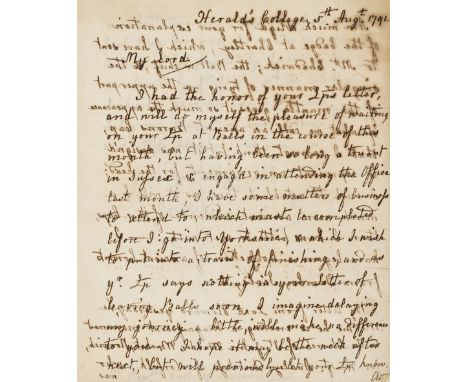 Herald's College, 5th Augt. 1791.
My Lord
I had the honor of your Lps letter,
and will do myself the pleasure of waiting
on your Lp at Balls in the course of this
month, but having been so long a truant
in Sussex & engag'd in attending the Office
last month, I have some matters of business
to attend to, which must be compleated
before I go into Yorkshire, which I wish
to put into a train of finishing, and as
yr. Lp says nothing in your letter of
leaving Balls soon I imagine delaying
my journey a little, will make no difference
to you. I hope it may be the week after
next, but will previously let your Lp. know.